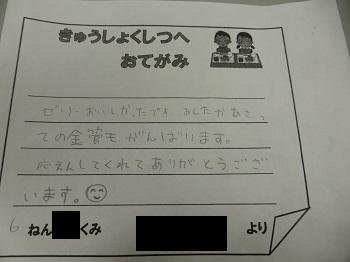 きゅうしょくしつへ
おてがみ
ゼリーおいしかったです。あしたがあさっ
ての金管もがんばります。
応えんしてくれてありがとうござ
います。
6ねん くみ より